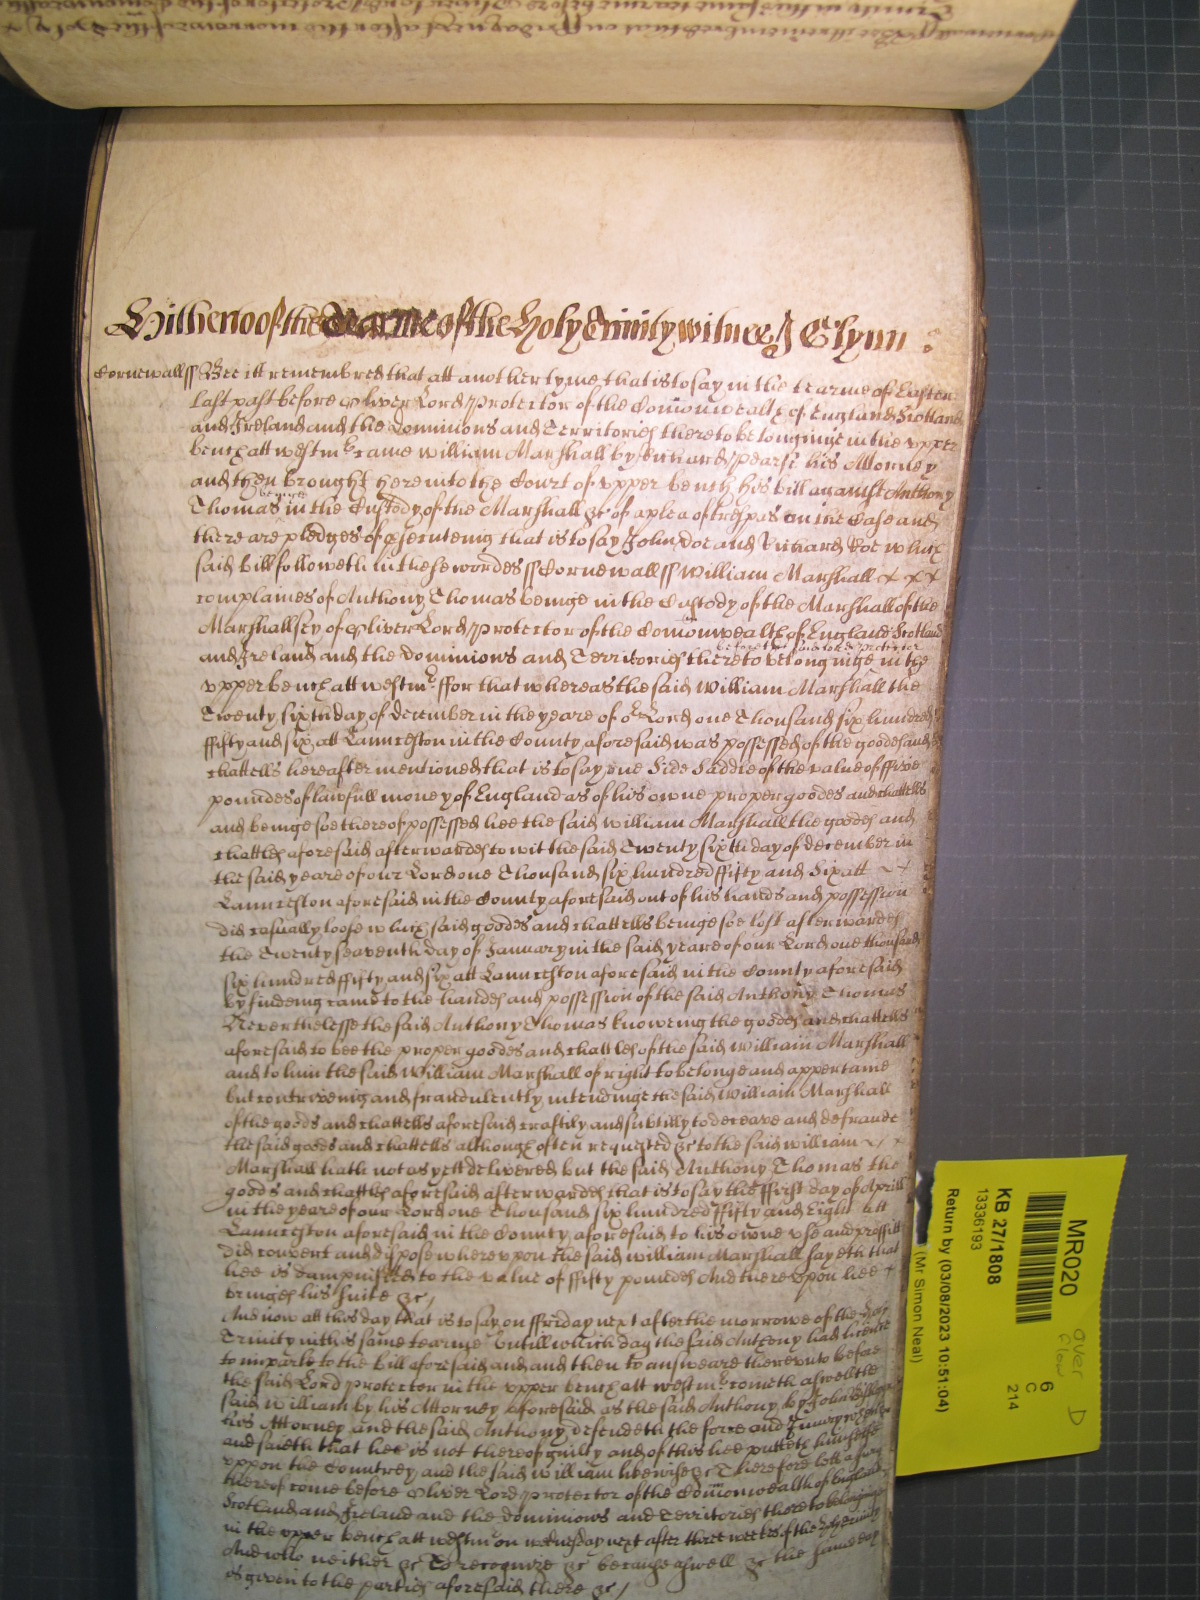 Hitherto of the Tearme of the Holy Trinity witnes J Glynn :
Cornewall ss Bee itt remembred that att another tyme that is to say in the tearme of Easter
last past before Oliver Lord Protector of the Comonwealth of England Scotland
and Ireland and the Dominions and Territories thereto belonginge in the vpper
bench att westmr came William Marshall by Richard Pearse his Attorney
and then brought here into the Court of vpper bench his bill against Anthony
Thomas beinge in the Custody of the Marshall &c of a plea of trespas on the Case and
there are pledges of prsecuteing that is to say John Doe and Richard Roe which
said bill followeth in these wordes ss Cornewall ss William Marshall x x x
complaines of Anthony Thomas beinge in the Custody of the Marshall of the
Marshallsey of Oliver Lord Protector of the Comonwealth of England Scotland
and Ireland and the Dominions and Territories thereto belonginge before the said lord protector in the
vpper bench att westmr ffor that whereas the said William Marshall the
Twenty sixth day of December in the yeare of or Lord one Thousand six hundred
ffifty and six att Launceston in the County aforesaid was possessed of the goodes and
chattells hereafter mentioned that is to say one Side Saddle of the value of ffive
poundes of lawfull money of England as of his owne proper goodes and chattells
and beinge soe thereof possessed hee the said William Marshall the goodes and
chattles aforesaid afterwardes to wit the said Twenty sixth day of December in
the said yeare of our Lord one Thousand six hundred ffifty and Six att
Launceston aforesaid in the County aforesaid out of his hands and possession
did casually loose which said goods and chattells beinge soe lost afterwardes
the Twenty seaventh day of January in the said yeare of our Lord one thousand
six hundred ffifty and six att Launceston aforesaid in the County aforesaid
by findeing came to the handes and possession of the said Anthony Thomas
Neverthelesse the said Anthony Thomas knoweing the goodes and chattells
aforesaid to bee the proper goodes and chattles of the said William Marshall
and to him the said William Marshall of right to belonge and appertaine
but contriveing and fraudulently intendinge the said William Marshall
of the goods and chattells aforesaid craftily and subtilly to deceave and defraude
the said goods and chattells although often requested &c to the said William
Marshall hath not as yett delivered but the said Anthony Thomas the
goods and chattles aforesaid afterwardes that is to say the ffirst day of Aprill
in the yeare of our Lord one Thousand six hundred ffifty and Eight att
Launceston aforesaid in the County aforesaid to his owne vse and proffitt
did convert and dispose wherevpon the said William Marshall sayeth that
hee is dampnified to the value of ffifty poundes And therevpon hee
bringes his suite &c
And now att this day that is to say on ffriday next after the morrowe of the Holy
Trinity in this same tearme Untill which day the said Anthony had licence
to imparle to the Bill aforesaid and and then to answeare therevnto before
the said Lord Protector in the vpper bench att westmr cometh aswell the
said William by his Attorney aforesaid as the said Anthony by John
his Attorney and the said Anthony defendeth the force and Iniury when &c
and saieth that hee is not thereof guilty and of this hee putteth himselfe
vppon the Countrey and the said William likewise &c Therefore lett a jury
thereof come before Oliver Lord Protector of the Comonwealth of England
Scotland and Ireland and the Dominions and Territories thereto belonginge
in the vpper bench att westmr on wednesday next after three weekes of the Holy Trinity
And who neither &c To recognize &c because aswell &c the same day
is given to the parties aforesaid there &c
MR020
KB 27/1808
13336193
Return by (03/08/2023 10:51:04)
(Mr Simon Neal)
6
C
214
over
flow
D